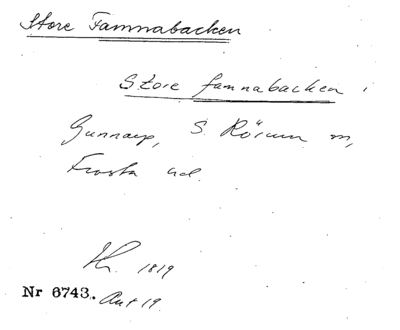 Store Famnabacken
Store famnabacken i
Gunnarp, S. Rörum sn,
Frosta hd.
1819
Nr 6743. Aut 19.